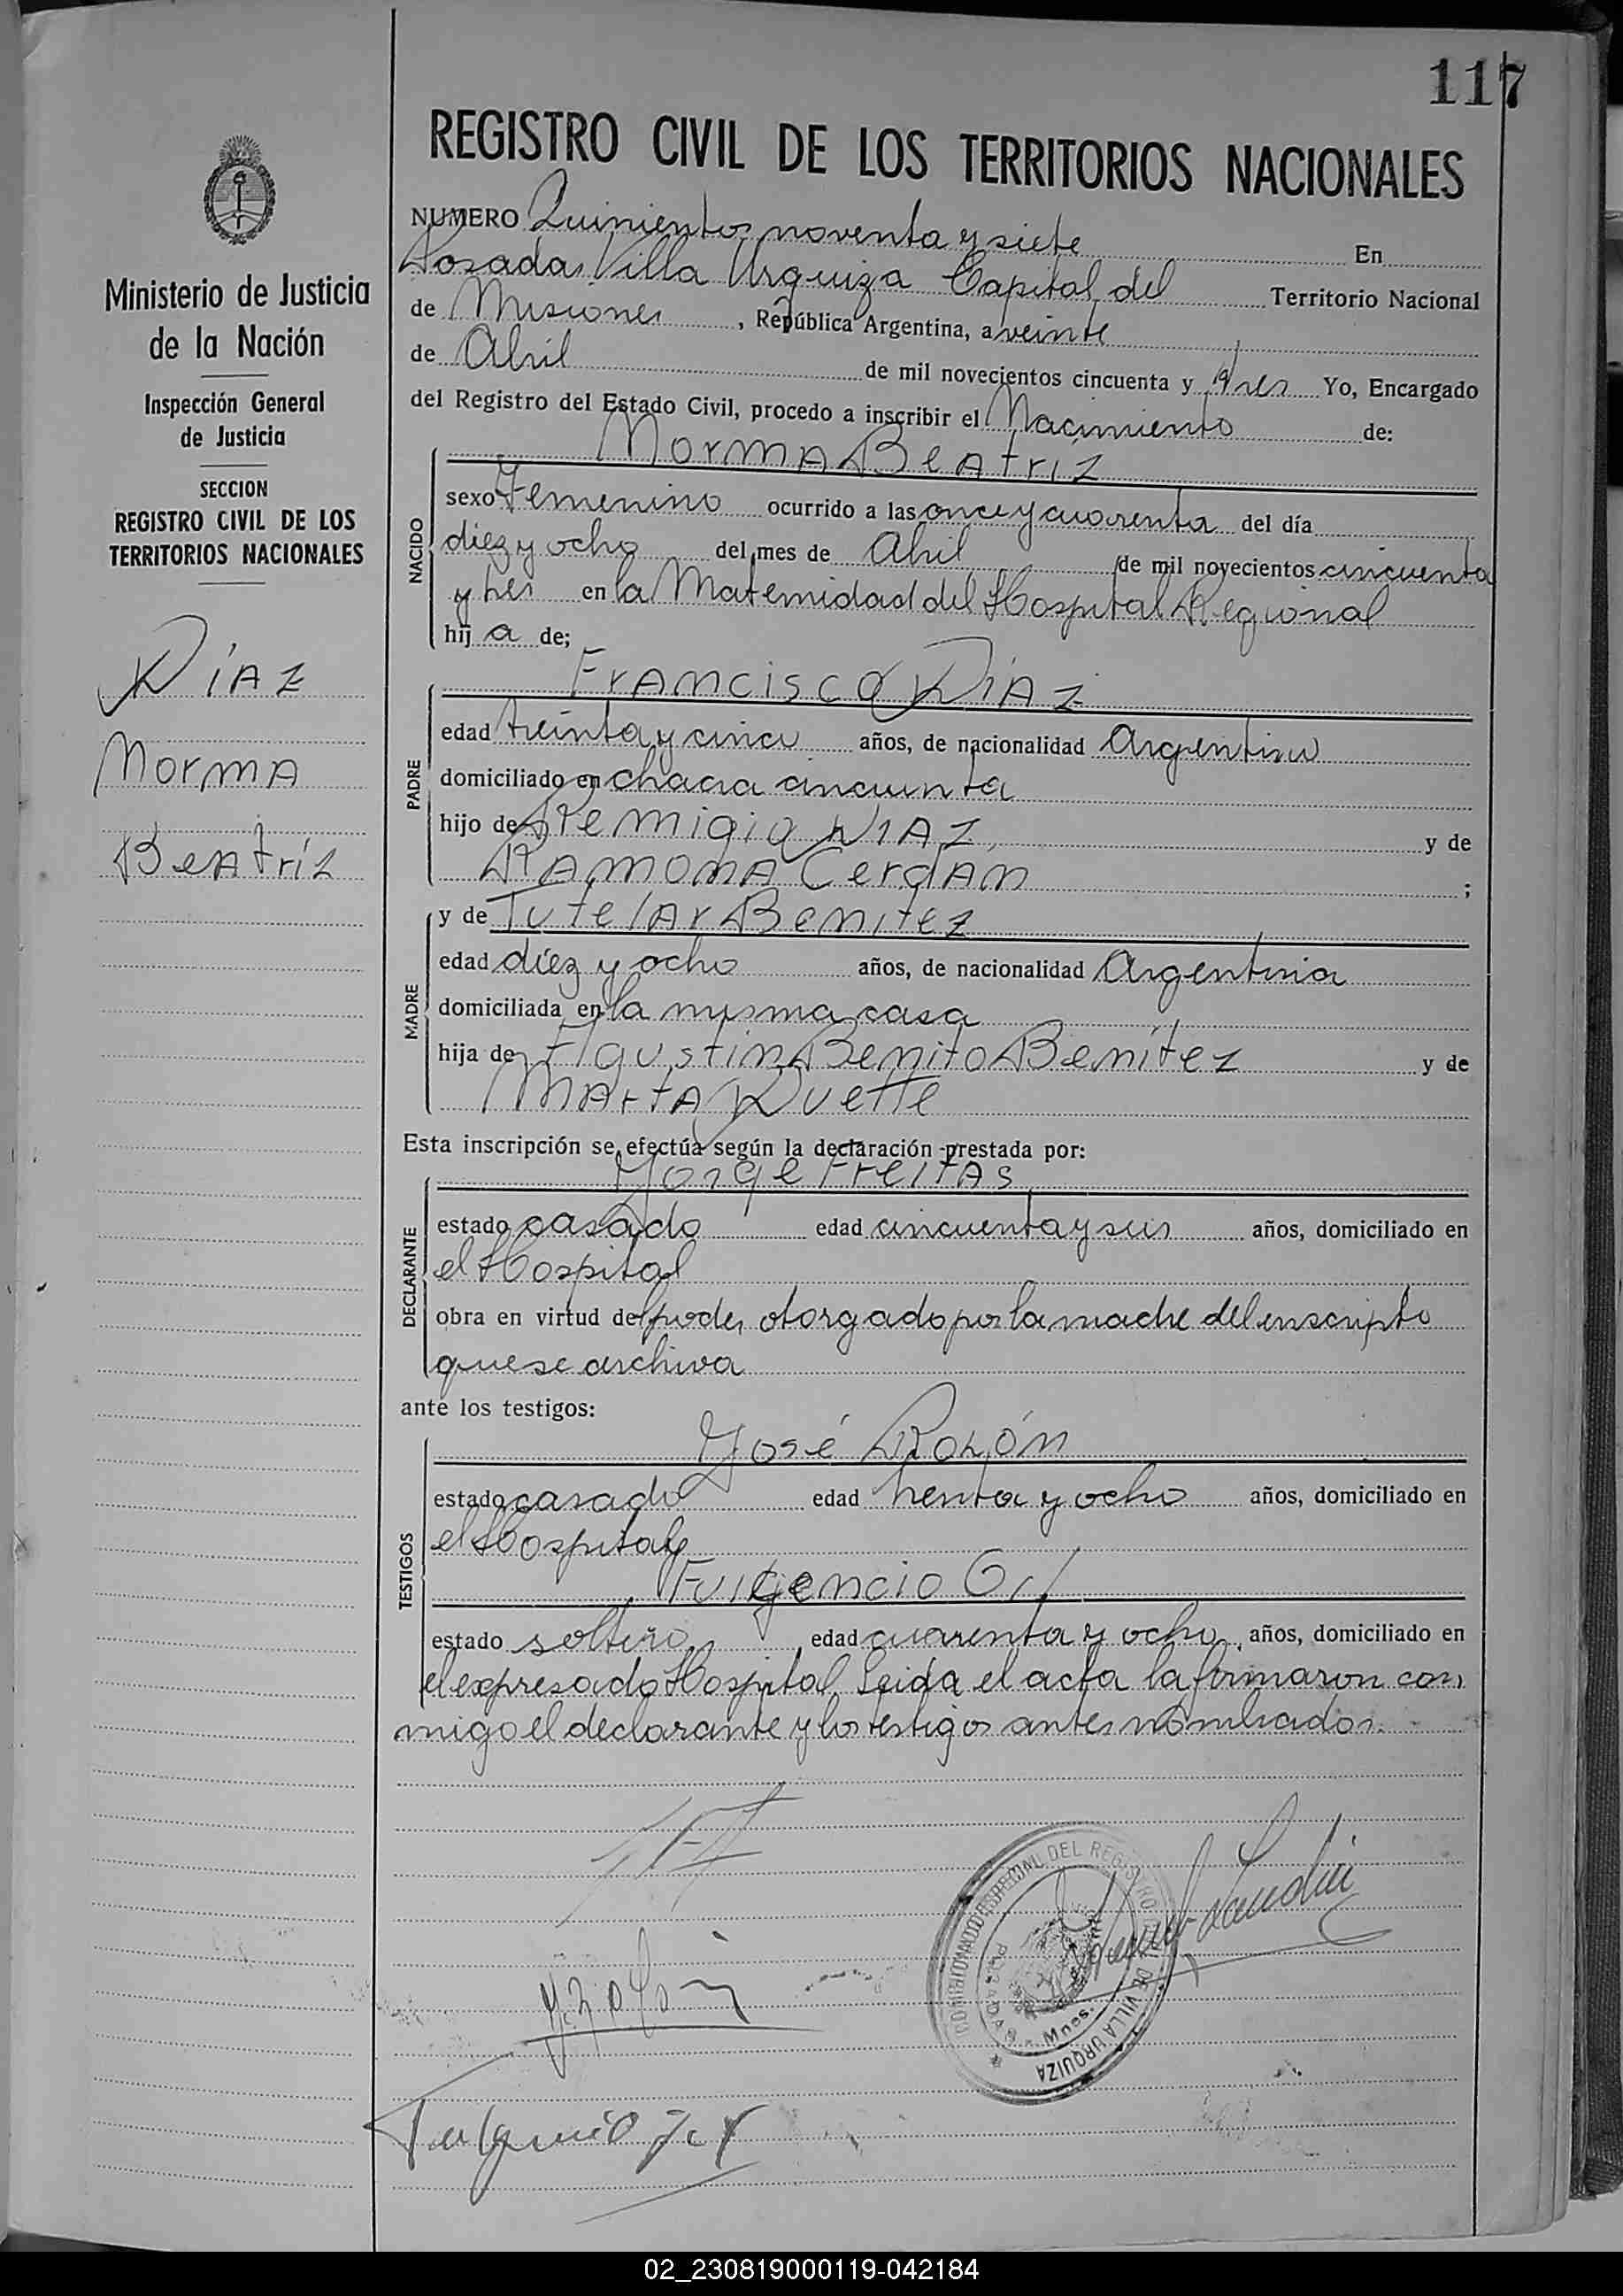 117
REGISTRO CIVIL DE LOS TERRITORIOS NACIONALES
Ministerio de Justicia
de la Nación
Inspección General
de Justicia
SECCION
REGISTRO CIVIL DE LOS
TERRITORIOS NACIONALES
Díaz
Norma
Beatríz
NUMERO Quinientos noventa y siete En
Posadas Villa Urquiza Capital del Territorio Nacional
de Misiones, República Argentina, a veinte
de Abril de mil novecientos cincuenta y tres Yo, Encargado
del Registro del Estado Civil, procedo a inscribir el Nacimiento de:
Norma Beatríz
NACIDO
sexo Femenino ocurrido a las once y cuarenta del día
diez y ocho del mes de Abril de mil novecientos cincuenta
y tres en la Maternidad del Hospital Regional
hij a de;
Francisco Díaz
PADRE
edad treinta y cinco años, de nacionalidad Argentino
domiciliado en chacra cincuenta
hijo de Remigio Díaz, y de
Ramona Cerdan ;
y de Tutelar Benitez
MADRE
edad diez y ocho años, de nacionalidad Argentina
domiciliada en la misma casa
hija de Agustin Benito Benítez y de
Marta Duette
Esta inscripción se efectúa según la declaración prestada por:
Jorge Freitas
DECLARANTE
estado casado edad cincuenta y seis años, domiciliado en
el Hospital
obra en virtud del poder otorgado por la madre del inscripto
que se archiva
ante los testigos:
José Rolón
TESTIGOS
estado casado edad trenta y ocho años, domiciliado en
el Hospital y
Fulgencio Gil
estado soltero, edad cuarenta y ocho, años, domiciliado en
el expresado Hospital. Leida el acta la firmaron con
migo el declarante y los testigos antes nombrados.
DEL REGISTRO
DE VILLA URQUIZA
POSADAS
Mnes.
Fulgencio Gil
02_230819000119-042184